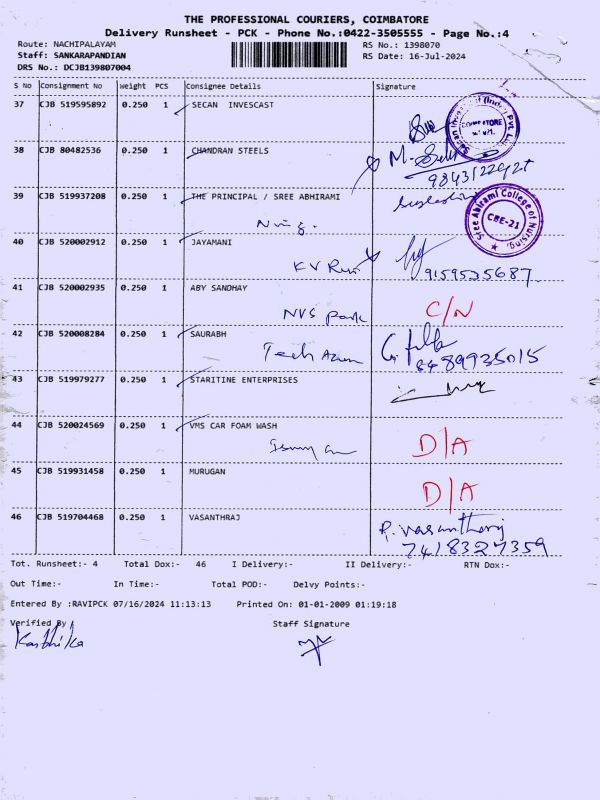 THE PROFESSIONAL COURIERS, COIMBATORE
Delivery Runsheet - PCK - Phone No.:0422-3505555 - Page No.:4
Route: NACHIPALAYAM
RS No.: 1398070
Staff: SANKARAPANDIAN
RS Date: 16-Jul-2024
DRS No.: DCJB139807004
S No Consignment No Weight PCS Consignee Details Signature
37 CJB 519595892 0.250 1 SECAN INVESCAST
38 CJB 80482536 0.250 1 CHANDRAN STEELS
39 CJB 519937208 0.250 1 THE PRINCIPAL / SREE ABHIRAMI
Sree Abirami College of Nursing,
CBE-21
40 CJB 520002912 0.250 1 JAYAMANI
9159535687
41 CJB 520002935 0.250 1 ABY SANDHAY
NVS Park C/N
42 CJB 520008284 0.250 1 SAURABH
Tech 8489935015
43 CJB 519979277 0.250 1 STARITINE ENTERPRISES
44 CJB 520024569 0.250 1 VMS CAR FOAM WASH
D/A
45 CJB 519931458 0.250 1 MURUGAN
D/A
46 CJB 519704468 0.250 1 VASANTHRAJ
P. Vasanthraj
7418327359
Tot. Runsheet:- 4 Total Dox:- 46 I Delivery:- II Delivery:- RTN Dox:-
Out Time:- In Time:- Total POD:- Delvy Points:-
Entered By :RAVIPCK 07/16/2024 11:13:13 Printed On: 01-01-2009 01:19:18
Verified By Staff Signature
Karthika